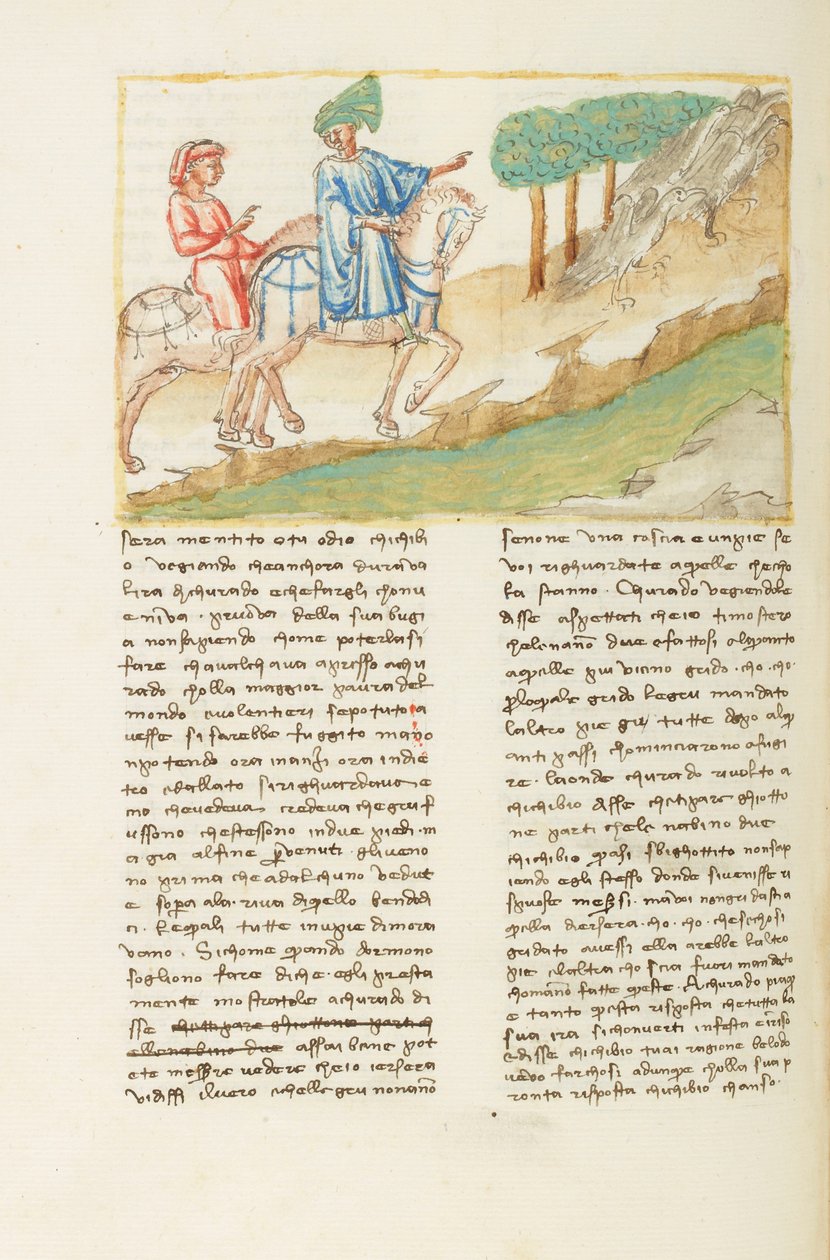 sera mentito o tu o dio chichibi
o vegiando che anchora durava
lira dichurado e che fargli chonu
eniva · pruova della sua bugi
a non sapiendo chome poterlasi
fare chavalchava apresso achu
rado cholla maggior paura del
mondo e volentieri se potuto a
vesse si sarebbe fuggito ma no
npotendo ora inanzi ora indie
tro e dallato si righuardava e
cio che vedeva credeva che gru f
ussono che stessono in due piedi · m
a gia alfine pervenuti gli veno
no prima che ad alchuno vedut
e sopra ala · riva diquello bendodi
ci · le quali tutte inupie dimora
vano · Sichome quando dormono
sogliono fare di che · egli presta
mente mostratole achurado di
sse che ti pare ghiottone parti ch
elle nabino due assai bene pot
ete messere vedere che io iersera
vi dissi il vero che lle gru nonano
senone una coscia e un pie se
voi righuardate a quelle che cho
la stanno · Churado vegiendole
disse aspettati che io ti mostero
che le nanno due e fattosi alquanto
a quelle piu vicino grido · cho · cho ·
per lo quale grido le gru mandato
laltro pie giu tutte dopo alqu
anti passi chominciarono a fugi
re · laonde churado rivolto a
chichibio disse che ti pare ghiotto
ne parti chele nabino due
chichibio quasi sbighottito non sap
iendo egli stesso donde si venisse ri
spuose messer si · ma voi non gridasti a
quella diersera · cho · cho · che se chosi
gridato avessi ella arebbe laltro
pie e laltra choscia fuori mandato
chomanno fatte queste · A churado piaqu
e tanto questa risposta che tutta la
sua ira si chonverti in festa e in riso
e disse chichibio tu ai ragione be lo do
vevo far chosi adunque cholla sua p
ronta risposta chichibio chanso ·